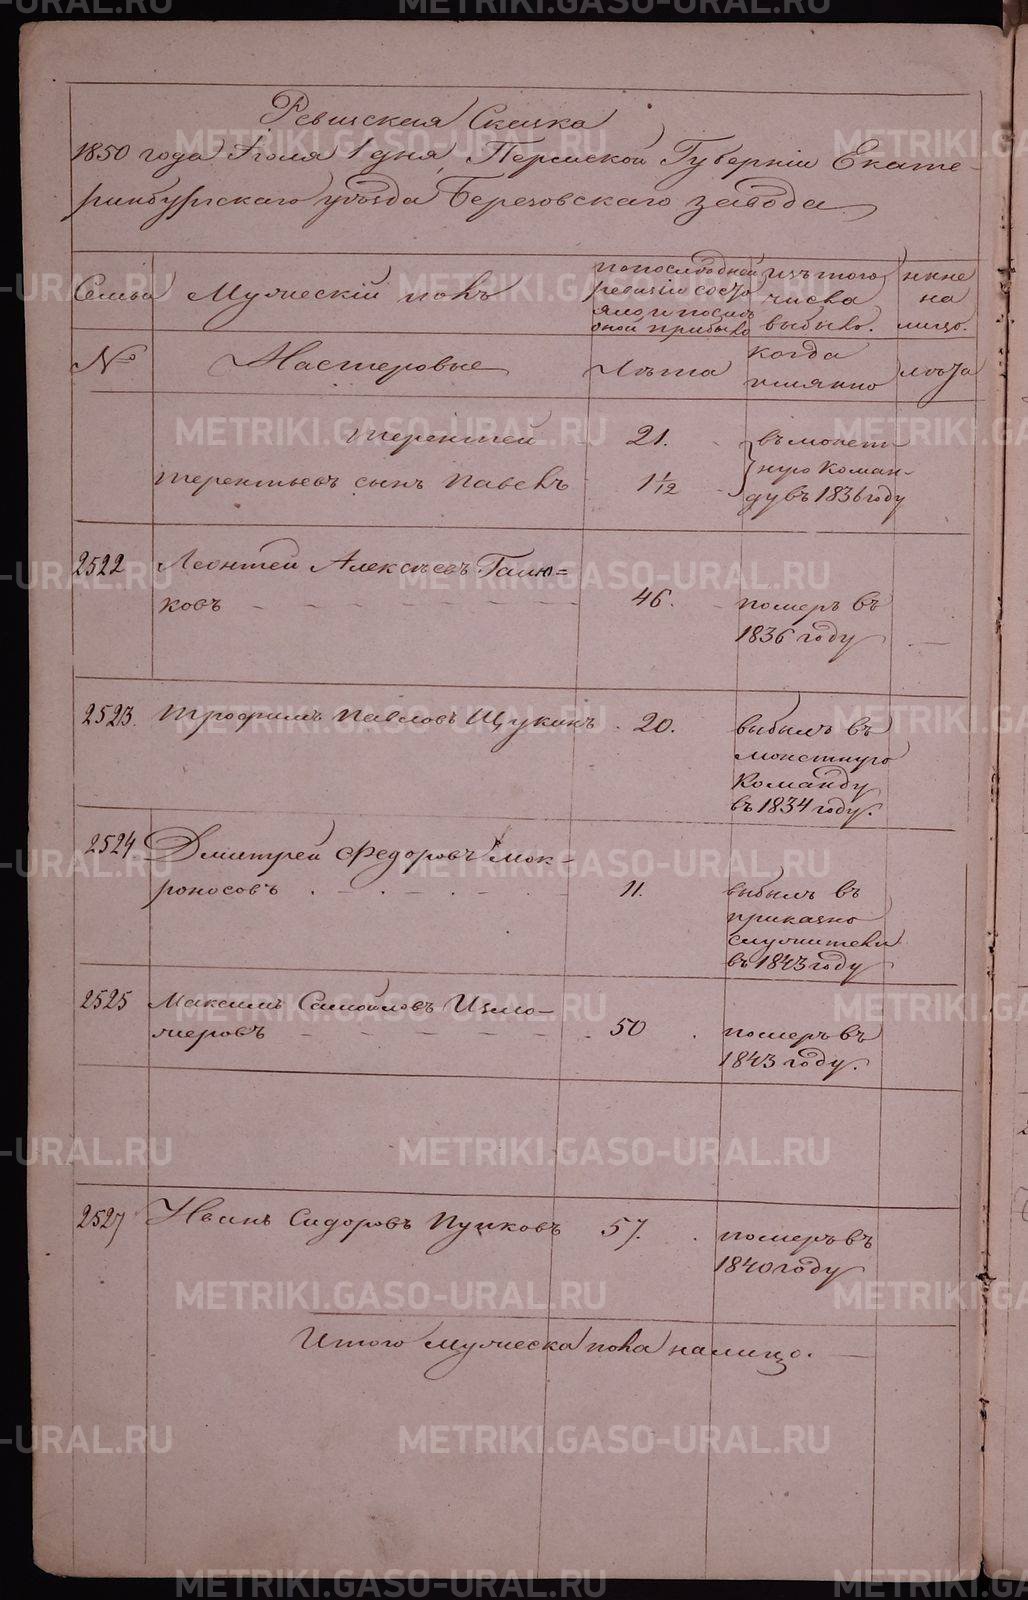 Ревижская Сказка
1850 года Июля 1 дня, Пермской Губернiи Екате-
ринбургскаго уѣзда Березовскаго завода
Семьи
Мужескiй полъ
по последней
ревизiи состо
яло и послѣ
оной прибыло
изъ того
числа
выбыло.
ныне
на
лицо.
№
Мастеровые
Лѣта
когда
имянно
лѣта
Терентей 21.
Терентьевъ сынъ Павелъ 1 1/12
въ монет-
ную Коман-
ду въ 1836 году
2522 Леонтей Алексѣевъ Галю=
ковъ 46. померъ въ
1836 году
2523. Трофимъ Павловъ Щукинъ 20. выбылъ въ
монетную
Команду
въ 1834 году.
2524 Дмитрей Федоровъ Мок-
роносовъ 11. выбылъ въ
приказно
служители
въ 1843 году
2525 Максимъ Самойловъ Измо-
жеровъ 50 померъ въ
1843 году.
2527 Иванъ Сидоровъ Пупковъ 57. померъ въ
1840 году
Итого мужеска пола на лицо. —
METRIKI.GASO-URAL.RU